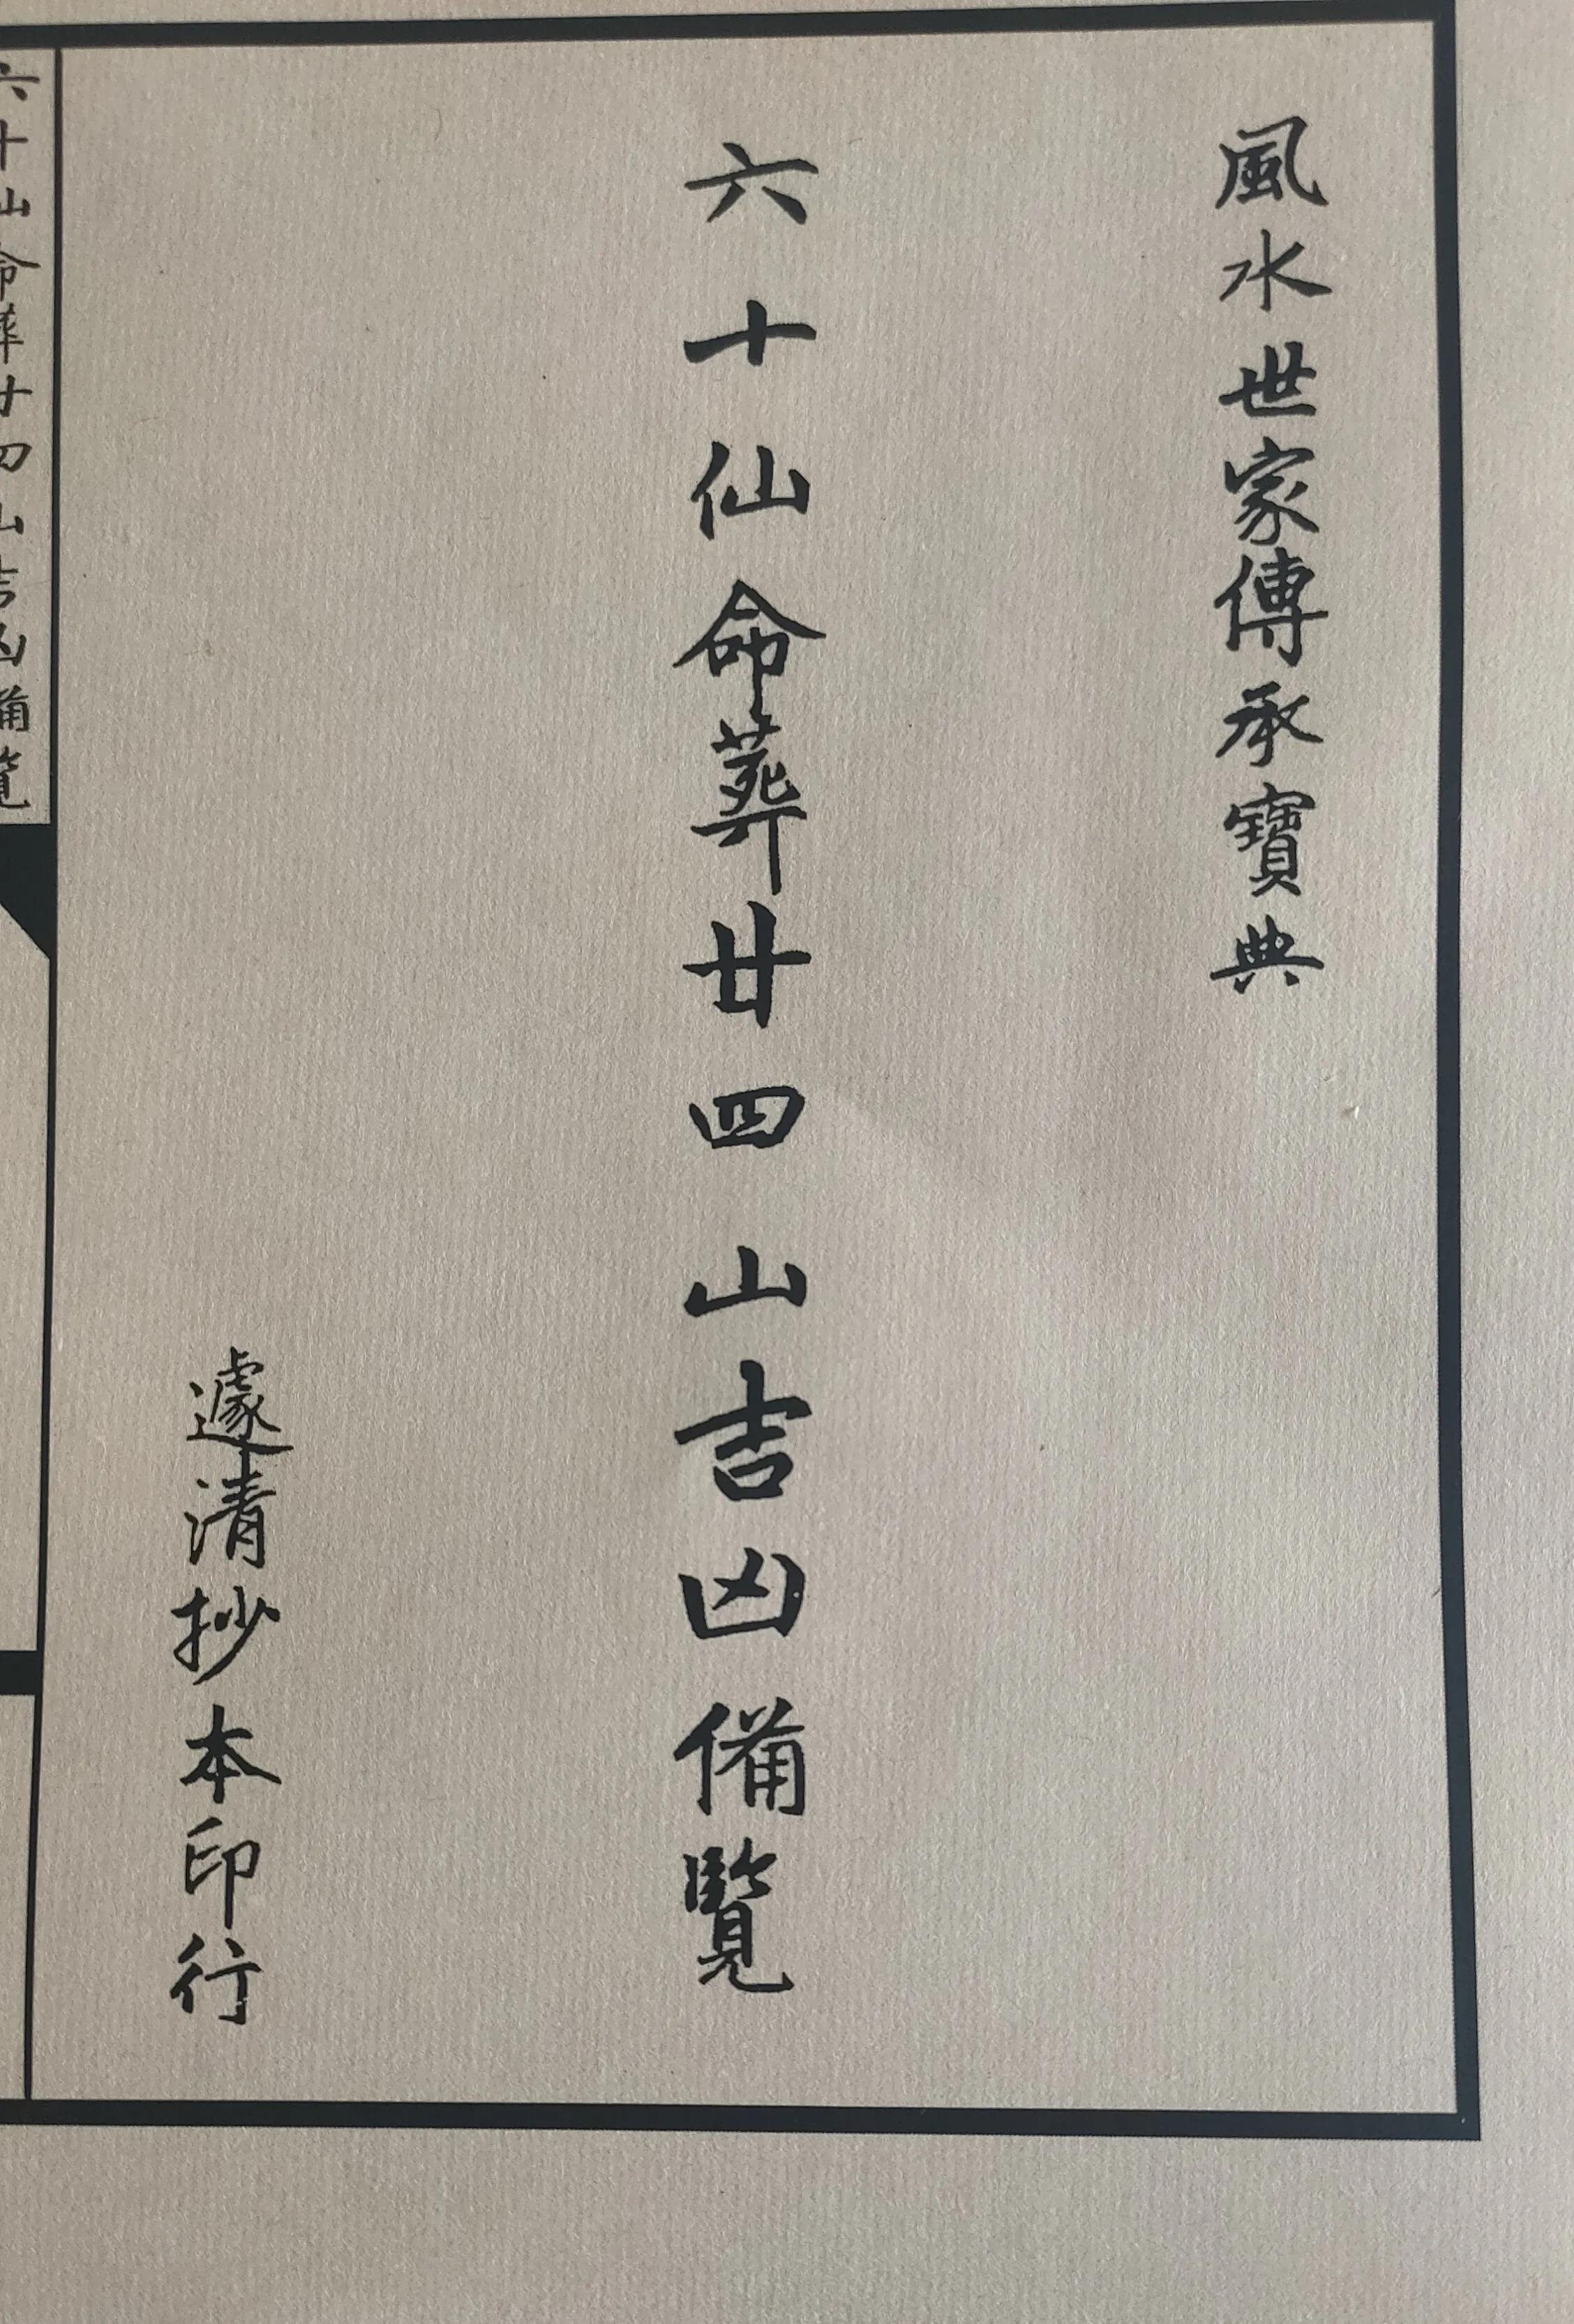 風水世家傳承寶典
六十仙命葬廿四山吉凶備覽
遽清抄本印行
六十仙命葬廿四山吉凶備覽